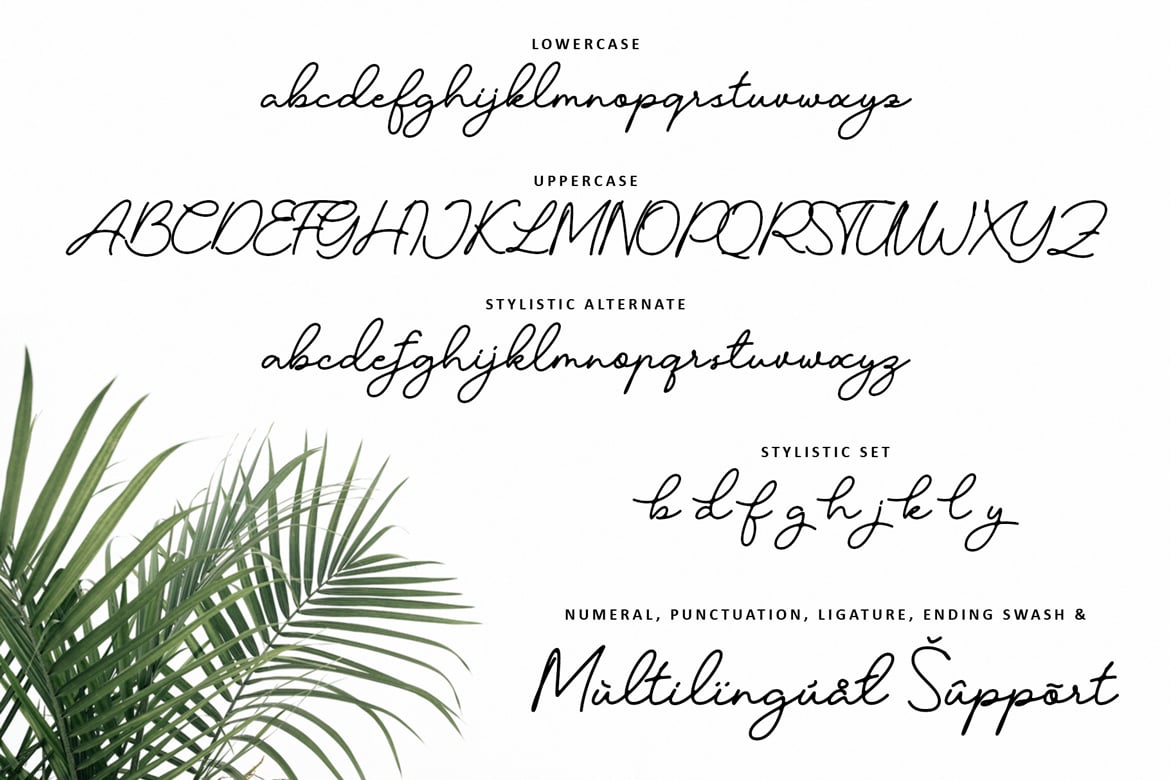 LOWERCASE
abcdefghijklmnopqrstuvwxyz
UPPERCASE
ABCDEFGHIJKLMNOPQRSTUVWXYZ
STYLISTIC ALTERNATE
abcdefghijklmnopqrstuvwxyz
STYLISTIC SET
b d f g h j k l y
NUMERAL, PUNCTUATION, LIGATURE, ENDING SWASH &
Mùltilïngúåt Šûppõrt